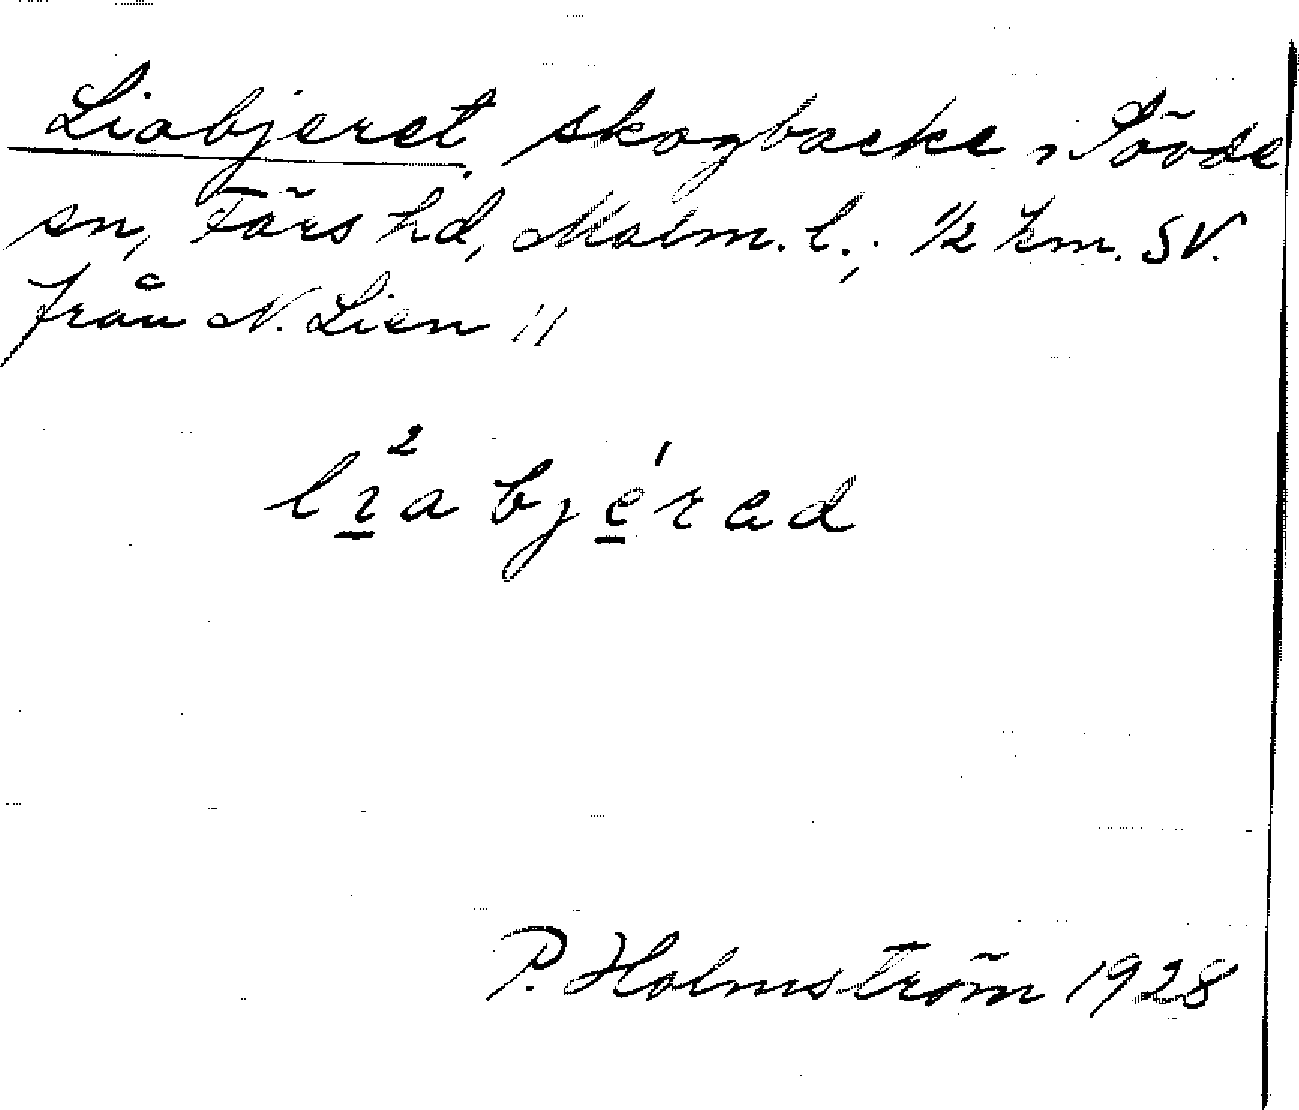 Liabjeret, skogbacke i Sövde
sn, Färs hd, Malm. l.; ½ km. SV.
från N. Lien //
lı̱²abjé̱rad
P. Holmström 1928